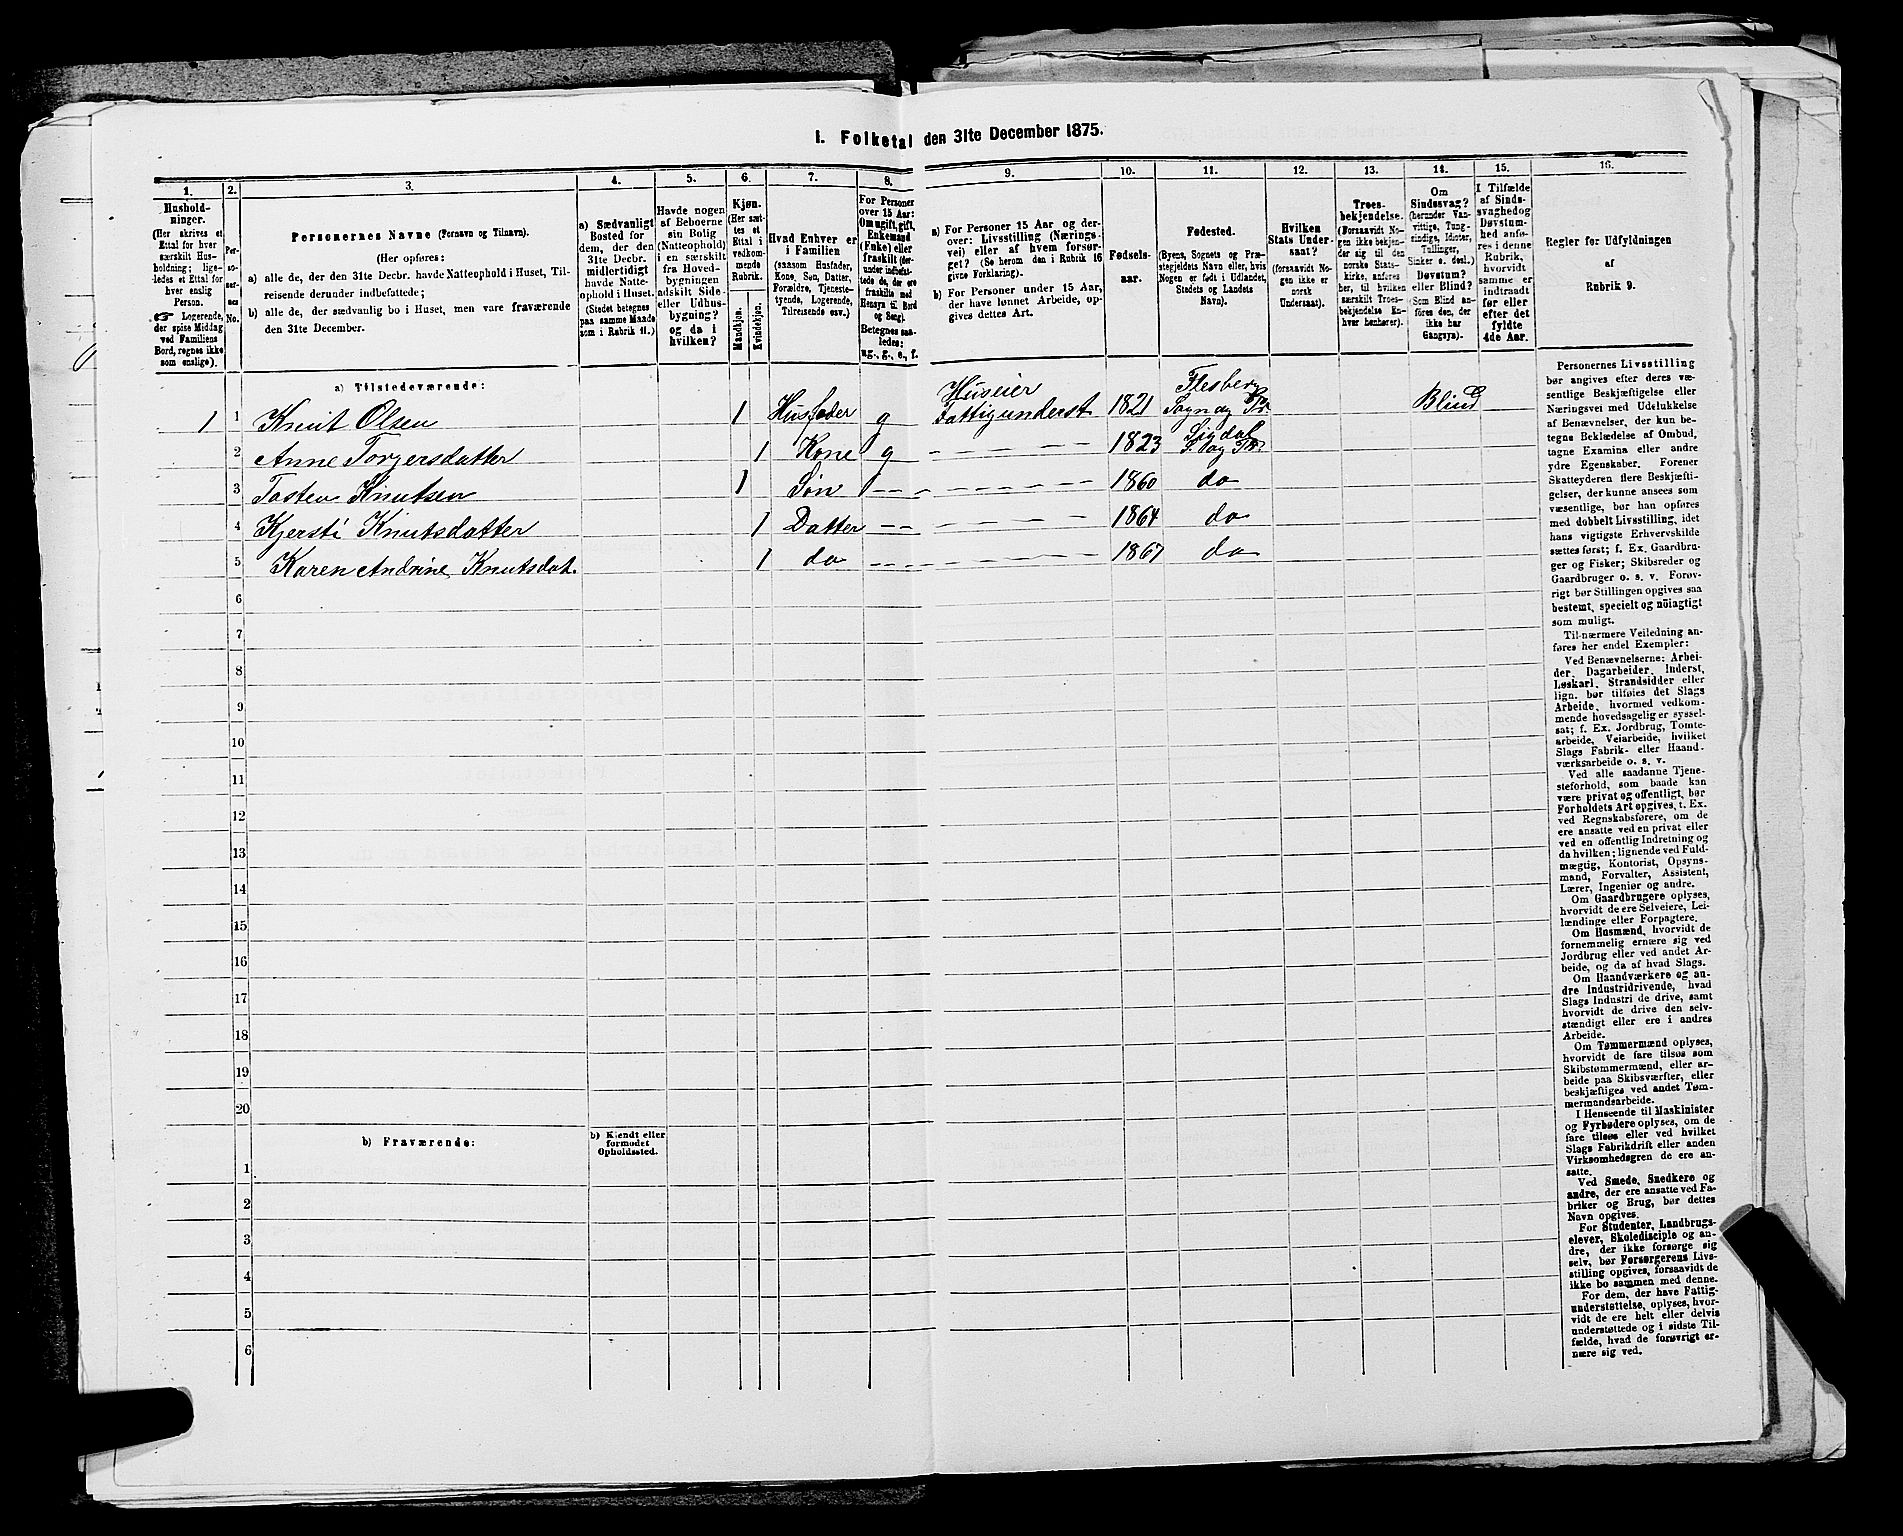 I. Folketal den 31te December 1875.
1. 2. 3. 4. 5. 6. 7. 8. 9. 10. 11. 12. 13. 14. 15. 16.
Hushold-
ninger.
(Her skrives et
Ettal for hver
særskilt Hus-
holdning; lige-
ledes et Ettal for
hver enslig
Person.
☞ Logerende,
der spise Middag
ved Familiens
Bord, regnes ikke
som enslige).
Per-
so-
ner-
nes
No.
Personernes Navne (Fornavn og Tilnavn).
(Her opføres:
a) alle de, der den 31te Decbr. havde Natteophold i Huset, Til-
reisende derunder indbefattede;
b) alle de, der sædvanlig bo i Huset, men vare fraværende
den 31te December.
a) Sædvanligt
Bosted for
dem, der den
31te Decbr.
midlertidigt
havde Natte-
ophold i Huset.
(Stedet betegnes
paa samme Maade
som i Rubrik 11.)
Havde nogen
af Beboerne
sin Bolig
(Natteophold)
i en særskilt
fra Hoved-
bygningen
adskilt Side-
eller Udhus-
bygning?
og da i
hvilken?
Kjøn.
(Her sæt-
tes et
Ettal i
vedkom-
mende
Rubrik.
Mandkjøn.
Kvindekjøn.
Hvad Enhver er
i Familien
(saasom Husfader,
Kone, Søn, Datter,
Forældre, Tjeneste-
tyende, Logerende,
Tilreisende osv.)
For Personer
over 15 Aar:
Om ugift, gift,
Enkemand
(Enke) eller
fraskilt (der-
under indbefat-
tede de, der ere
fraskilte med
Hensyn til Bord
og Seng).
Betegnes saa-
ledes:
ug., g., e., f.
a) For Personer 15 Aar og der-
over: Livsstilling (Nærings-
vei) eller af hvem forsør-
get? (Se herom den i Rubrik 16
givne Forklaring).
b) For Personer under 15 Aar,
der have lønnet Arbeide, op-
gives dettes Art.
Fødsels-
aar.
Fødested.
(Byens, Sognets og Præ-
stegjeldets Navn eller, hvis
Nogen er født i Udlandet,
Stedets og Landets
Navn).
Hvilken
Stats Under-
saat?
(forsaavidt No-
gen ikke er
norsk
Undersaat).
Troes-
bekjendelse.
(Forsaavidt No-
gen ikke bekjen-
der sig til den
norske Stats-
kirke, anføres
her, til hvilken
særskilt Troes-
bekjendelse En-
hver henhører).
Om
Sindssvag?
(herunder Van-
vittige, Tung-
sindige, Idioter,
Tullinger,
Sinker o. desl.)
Døvstum?
eller Blind?
(Som Blind an-
føres den, der
ikke har
Gangsyn).
I Tilfælde
af Sinds-
svaghed og
Døvstum-
hed anfø-
res i denne
Rubrik,
hvorvidt
samme er
indtraadt
før eller
efter det
fyldte
4de Aar.
Regler før Udfyldningen
af
Rubrik 9.
a) Tilstedeværende:
1 1 Knut Olsen 1 Husfader g Huseier Fattigunderst 1821 Flesberg Sogn og Pr. Blind
2 Anne Torgersdatter 1 Kone g - - - - 1823 Sigdal S. og Pr.
3 Tosten Knutsen 1 Søn - - - - - - 1860 do
4 Kjersti Knutsdatter 1 Datter - - - - - - 1864 do
5 Karen Andrine Knutsdat. 1 do - - - - - - 1867 do
6
7
8
9
10
11
12
13
14
15
16
17
18
19
20
b) Fraværende:
b) Kjendt eller
formodet
Opholdssted.
1
2
3
4
5
6
Personernes Livsstilling
bør angives efter deres væ-
sentlige Beskjæftigelse eller
Næringsvei med Udelukkelse
af Benævnelser, der kun be-
tegne Beklædelse af Ombud,
tagne Examina eller andre
ydre Egenskaber. Forener
Skatteyderen flere Beskjæfti-
gelser, der kunne ansees som
væsentlige, bør han opføres
med dobbelt Livsstilling, idet
hans vigtigste Erhvervskilde
sættes først; f. Ex. Gaardbru-
ger og Fisker; Skibsreder og
Gaardbruger o. s. v. Forøv-
rigt bør Stillingen opgives saa
bestemt, specielt og nöiagtigt
som muligt.
Til nærmere Veiledning an-
føres her endel Exempler:
Ved Benævnelserne: Arbei-
der, Dagarbeider, Inderst,
Løskarl, Strandsidder eller
lign. bør tilføies det Slags
Arbeide, hvormed vedkom-
mende hovedsagelig er syssel-
sat; f. Ex. Jordbrug, Tomte-
arbeide, Veiarbeide, hvilket
Slags Fabrik- eller Haand-
værksarbeide o. s. v.
Ved alle saadanne Tjene-
steforhold, som baade kan
være privat og offentligt, bør
Forholdets Art opgives, t. Ex.
ved Regnskabsførere, om de
ere ansatte ved en privat eller
ved en offentlig Indretning og
da hvilken; lignende ved Fuld-
mægtig, Kontorist, Opsyns-
mand, Forvalter, Assistent,
Lærer, Ingeniør og andre.
Om Gaardbrugere oplyses,
hvorvidt de ere Selveiere, Lei-
lændinge eller Forpagtere.
Om Husmænd, hvorvidt de
fornemmelig ernære sig ved
Jordbrug eller ved andet Ar-
beide, og da af hvad Slags.
Om Haandværkere og an-
dre Industridrivende, hvad
Slags Industri de drive, samt
hvorvidt de drive den selv-
stændigt eller ere i andres
Arbeide.
Om Tømmermænd oplyses,
hvorvidt de fare tilsøs som
Skibstømmermænd, eller ar-
beide paa Skibsværfter, eller
beskjæftiges ved andet Tøm-
mermandsarbeide.
I Henseende til Maskinister
og Fyrbødere oplyses, om de
fare tilsøs eller ved hvilket
Slags Fabrikdrift eller anden
Virksomhedsgren de ere an-
satte.
Ved Smede, Snedkere og
andre, der ere ansatte ved Fa-
briker og Brug, bør dettes
Navn opgives.
For Studenter, Landbrugs-
elever, Skoledisciple og an-
dre, der ikke forsørge sig
selv, bør Forsørgerens Livs-
stilling opgives, forsaavidt de
ikke bo sammen med denne.
For dem, der have Fattig-
understøttelse, oplyses, hvor-
vidt de ere helt eller delvis
understøttede og i sidste Til-
fælde, hvad de forøvrigt er-
nære sig ved.